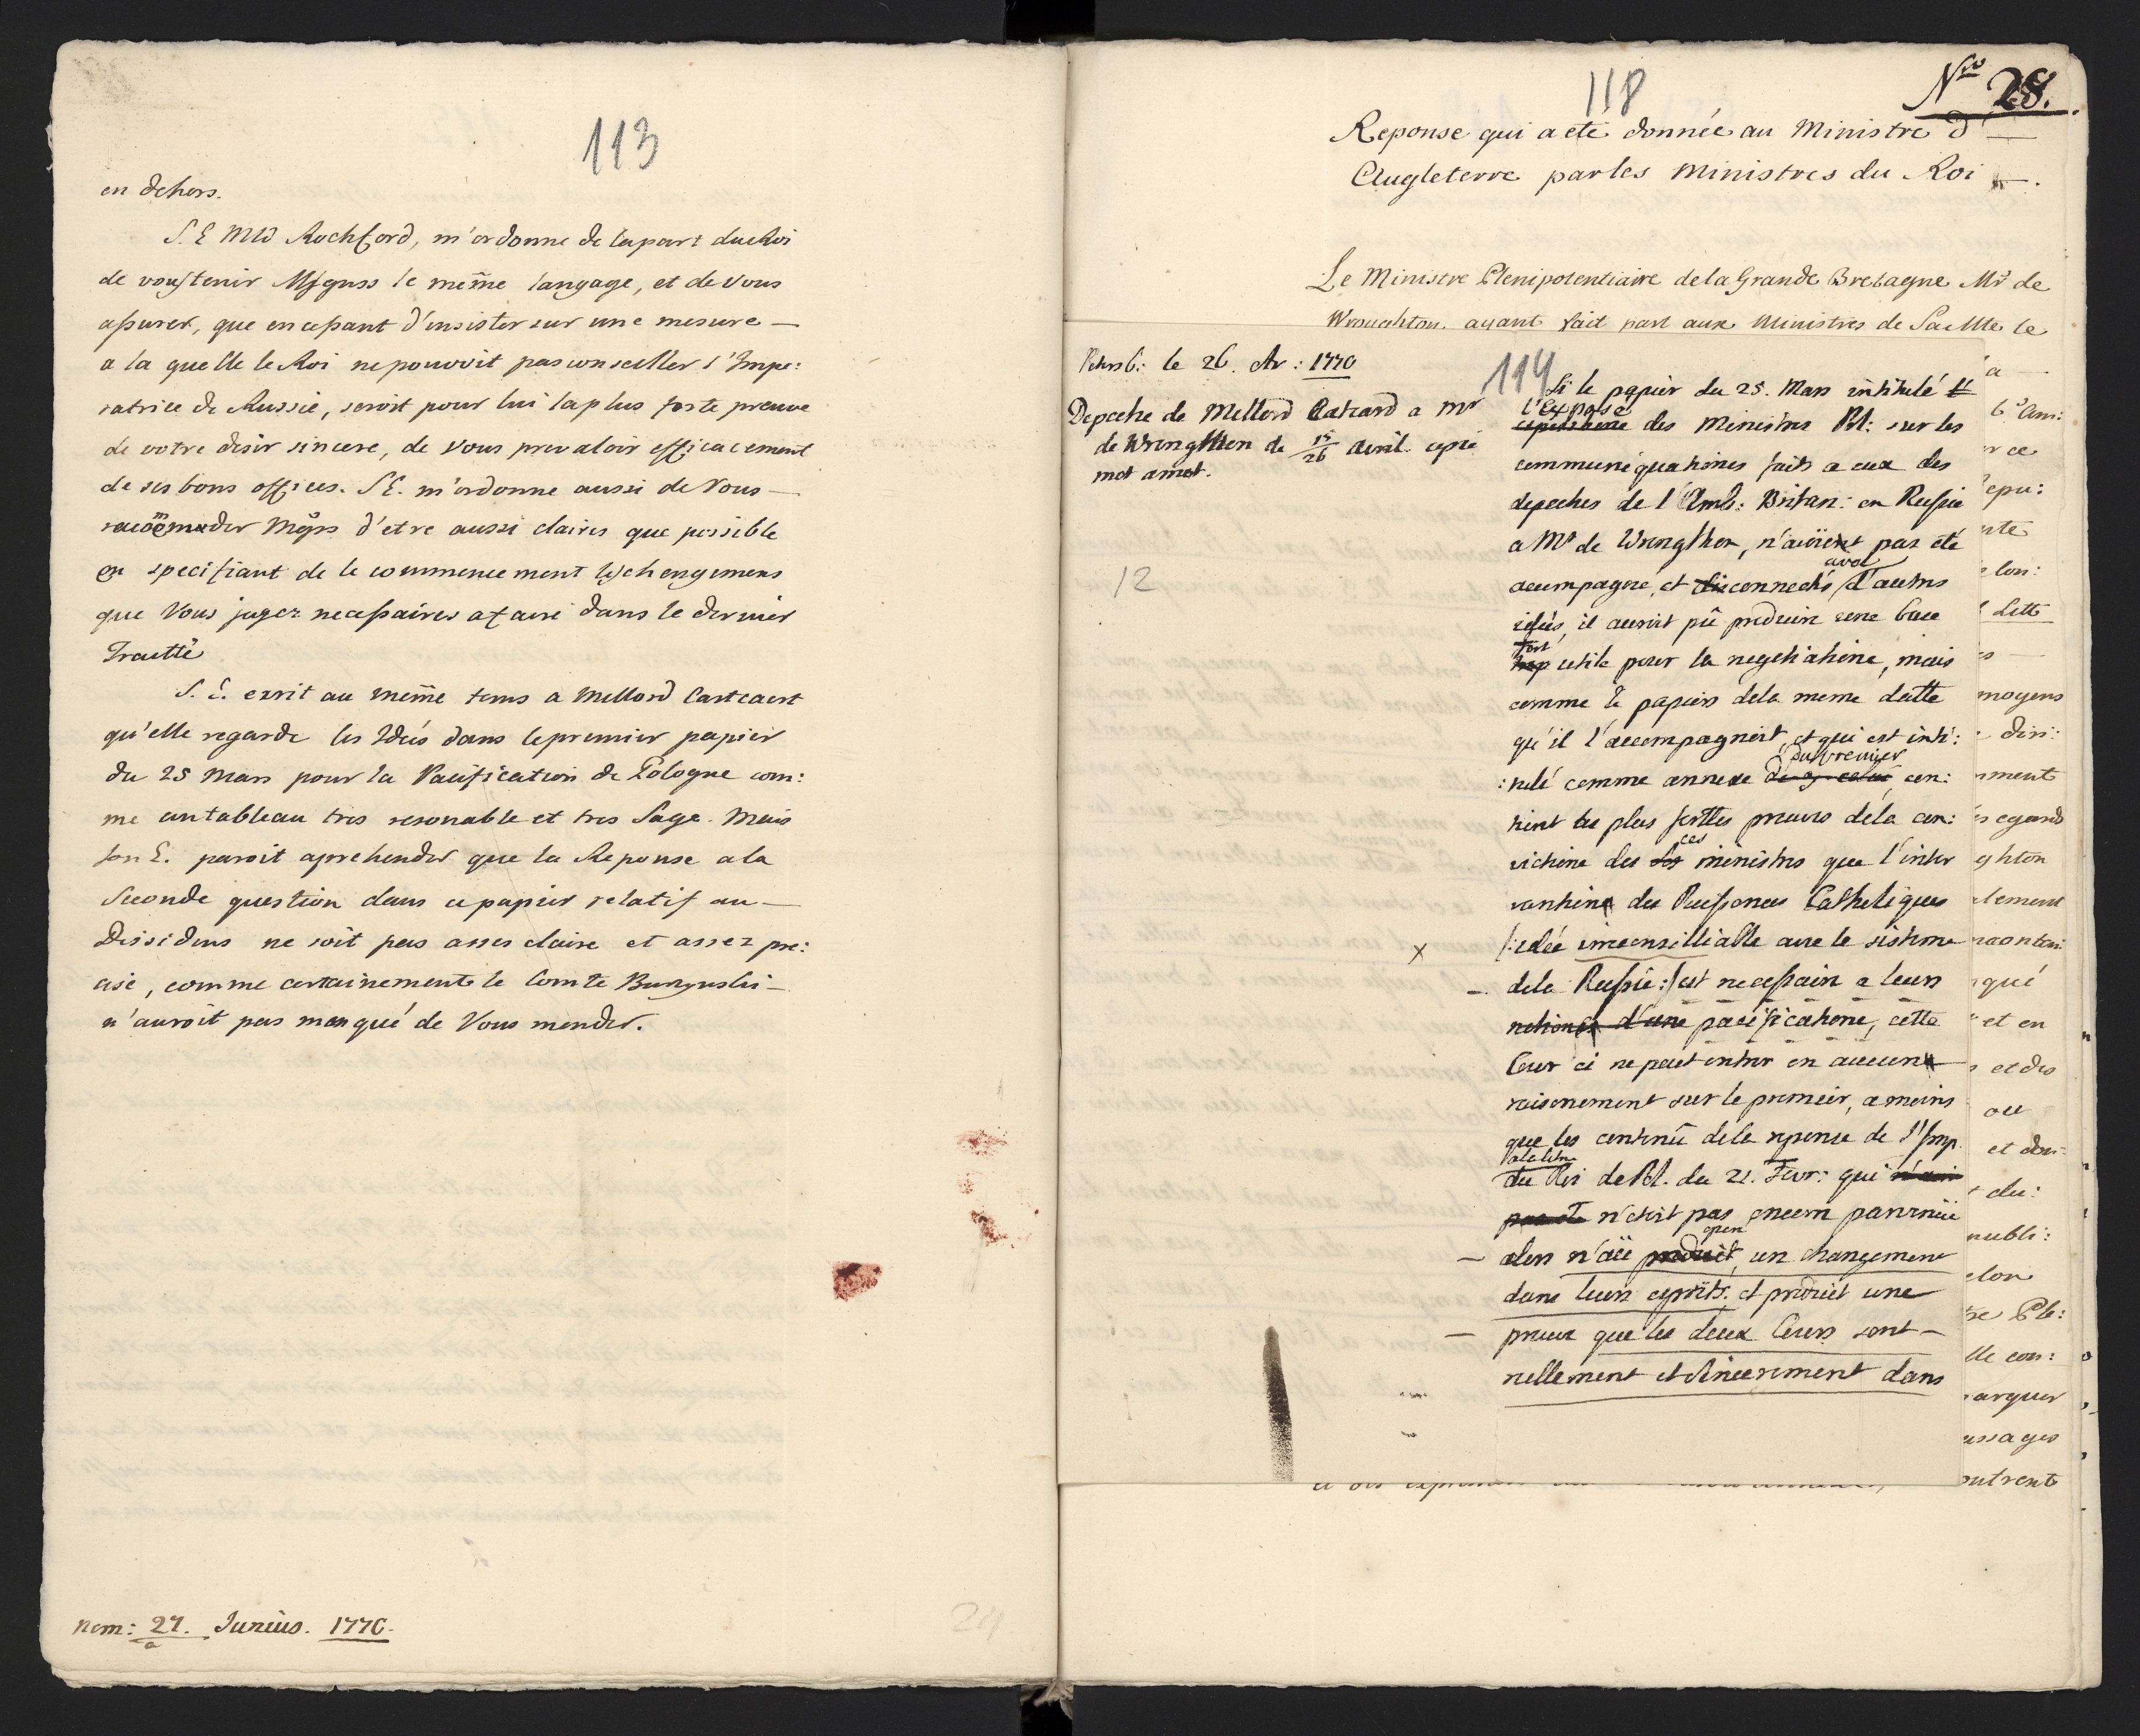 113
en dehors.
S. E Mld Rochford, m'ordonne de la part du Roi
de vous tenir Msgnss le même langage, et de Vous
assurer, que en cessant d'insister sur une mesure —
a la quelle le Roi ne pouvoit pas conseiller l'Impe:
ratrice de Russie, seroit pour lui la plus forte preuve
de votre désir sincere, de vous prevaloir efficacement
de ses bons offices. S E. m'ordonne aussi de Vous —
d'etre aussi claires que possible
en specifiant de le commencement les changemens
que Vous jugez necessaires a faire dans le dernier
Traitté
S. E. ecrit au même tems a Mellord Cartcaert
qu'elle regarde les Idées dans le premier papier
du 25 Mars pour la Pacification de Pologne com:
me un tableau tres resonable et tres Sage. Mais
son E. paroit aprehender que la Reponse a la
Seconde question dans ce papier relatif au —
Dissidens ne soit pas asses claire et assez pre:
cise, comme certainement le Comte Burzynski —
n'auroit pas manqué de Vous mender.
nom: 27. Junius. 1770.
24
118
Nro 28.
Reponse qui a été donnée au Ministre d' —
Angleterre par les Ministres du Roi —.
Le Ministre Plenipotentiaire de la Grande Bretagne Mr de
Wroughton ayant fait part aux Ministres de Sa Mte le
Petersb: le 26. Av: 1770
Depeche de Mellord Catcard a Mr
de Wrougthon de 15/26 avril copié
mot a mot.
12
114
Si le papier du 25. Mars intitulé
l'exposé
des Ministres Pol: sur les
communiquations faits a eux des
depeches de l'Amb: Britan: en Russie
a Mr de Wrougthon, n'avoient pas été
avec
accompagné, et connectés d'autres
idées, il auroit pû produire une base
fort
utile pour la negotiatione, mais
comme le papiers de la meme datte
qu'il l'accompagnoit, et qui est inti:
du premier
:tulé comme annexe con:
tient les plus fortes preuves de la con:
ces
victione des ministres que l'inter
vantione des Puissances Catholiques
x /:idée inconsilliable avec le sistheme
— de la Russie:/ est necessaire a leurs
notions d'une pacificatione, cette
Cour ci ne peut entrer en aucune
raisonement sur le premier, a moins
que les contenû de la reponse de l'Imp.
a la lettre
du Roi de Pol. du 21. Fevr: qui
n'etoit pas encore parvenue
— alors n'aie un changement
dans leurs esprits. et produit une
— preuve que les deux Cours sont —
rellement et sincerement dans
a —
moyens
nment
egards
ghton
qué
et en
et des
ou
publi:
arquer
ussages